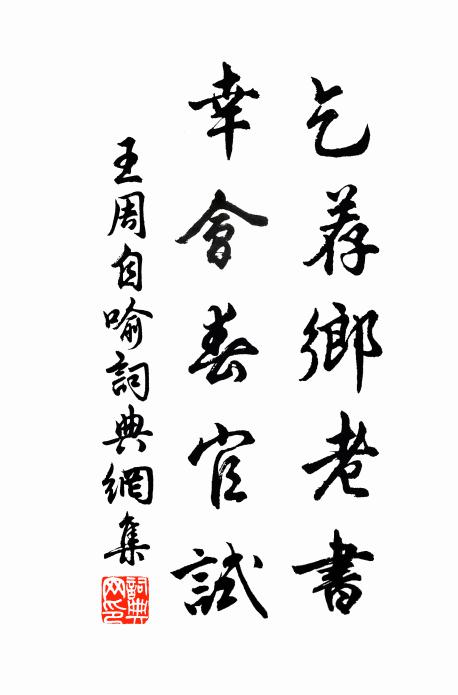 乞荐鄉老書
幸會春官試
王周自喻詞典網集
詞典網印